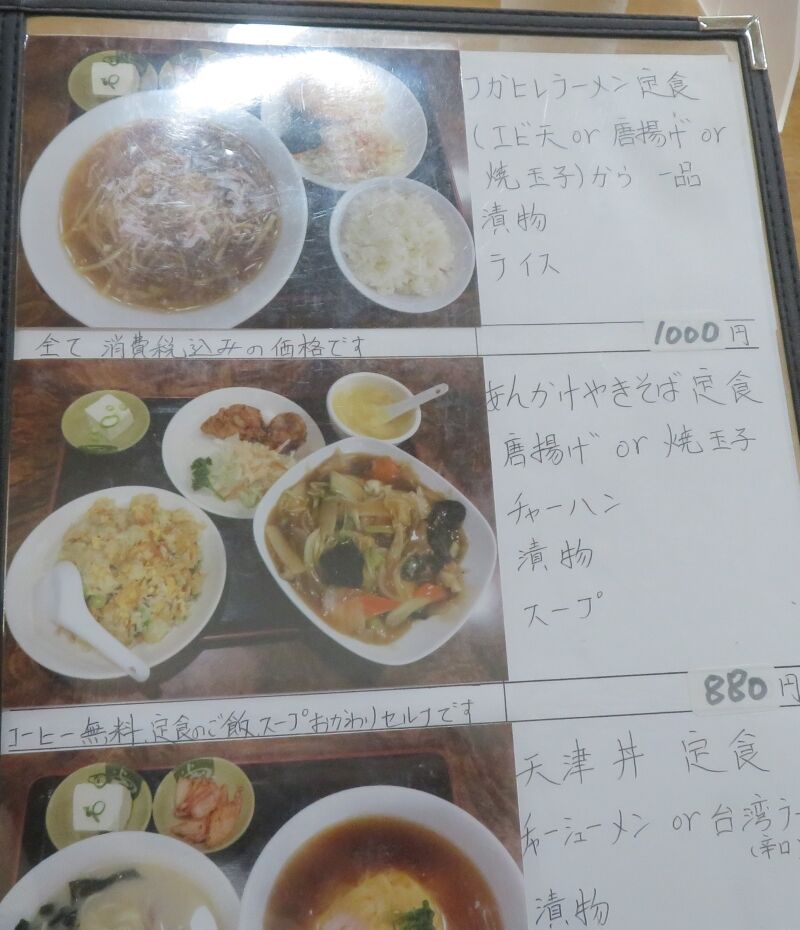 フカヒレラーメン定食
(エビ天 or 唐揚げ or
焼玉子)から 一品
漬物
ライス
全て 消費税込みの価格です
1000円
あんかけやきそば定食
唐揚げ or 焼玉子
チャーハン
漬物
スープ
コーヒー無料 定食のご飯スープおかわりセルフです
880円
天津丼 定食
チャーシューメン or 台湾ラー
(辛口
漬物